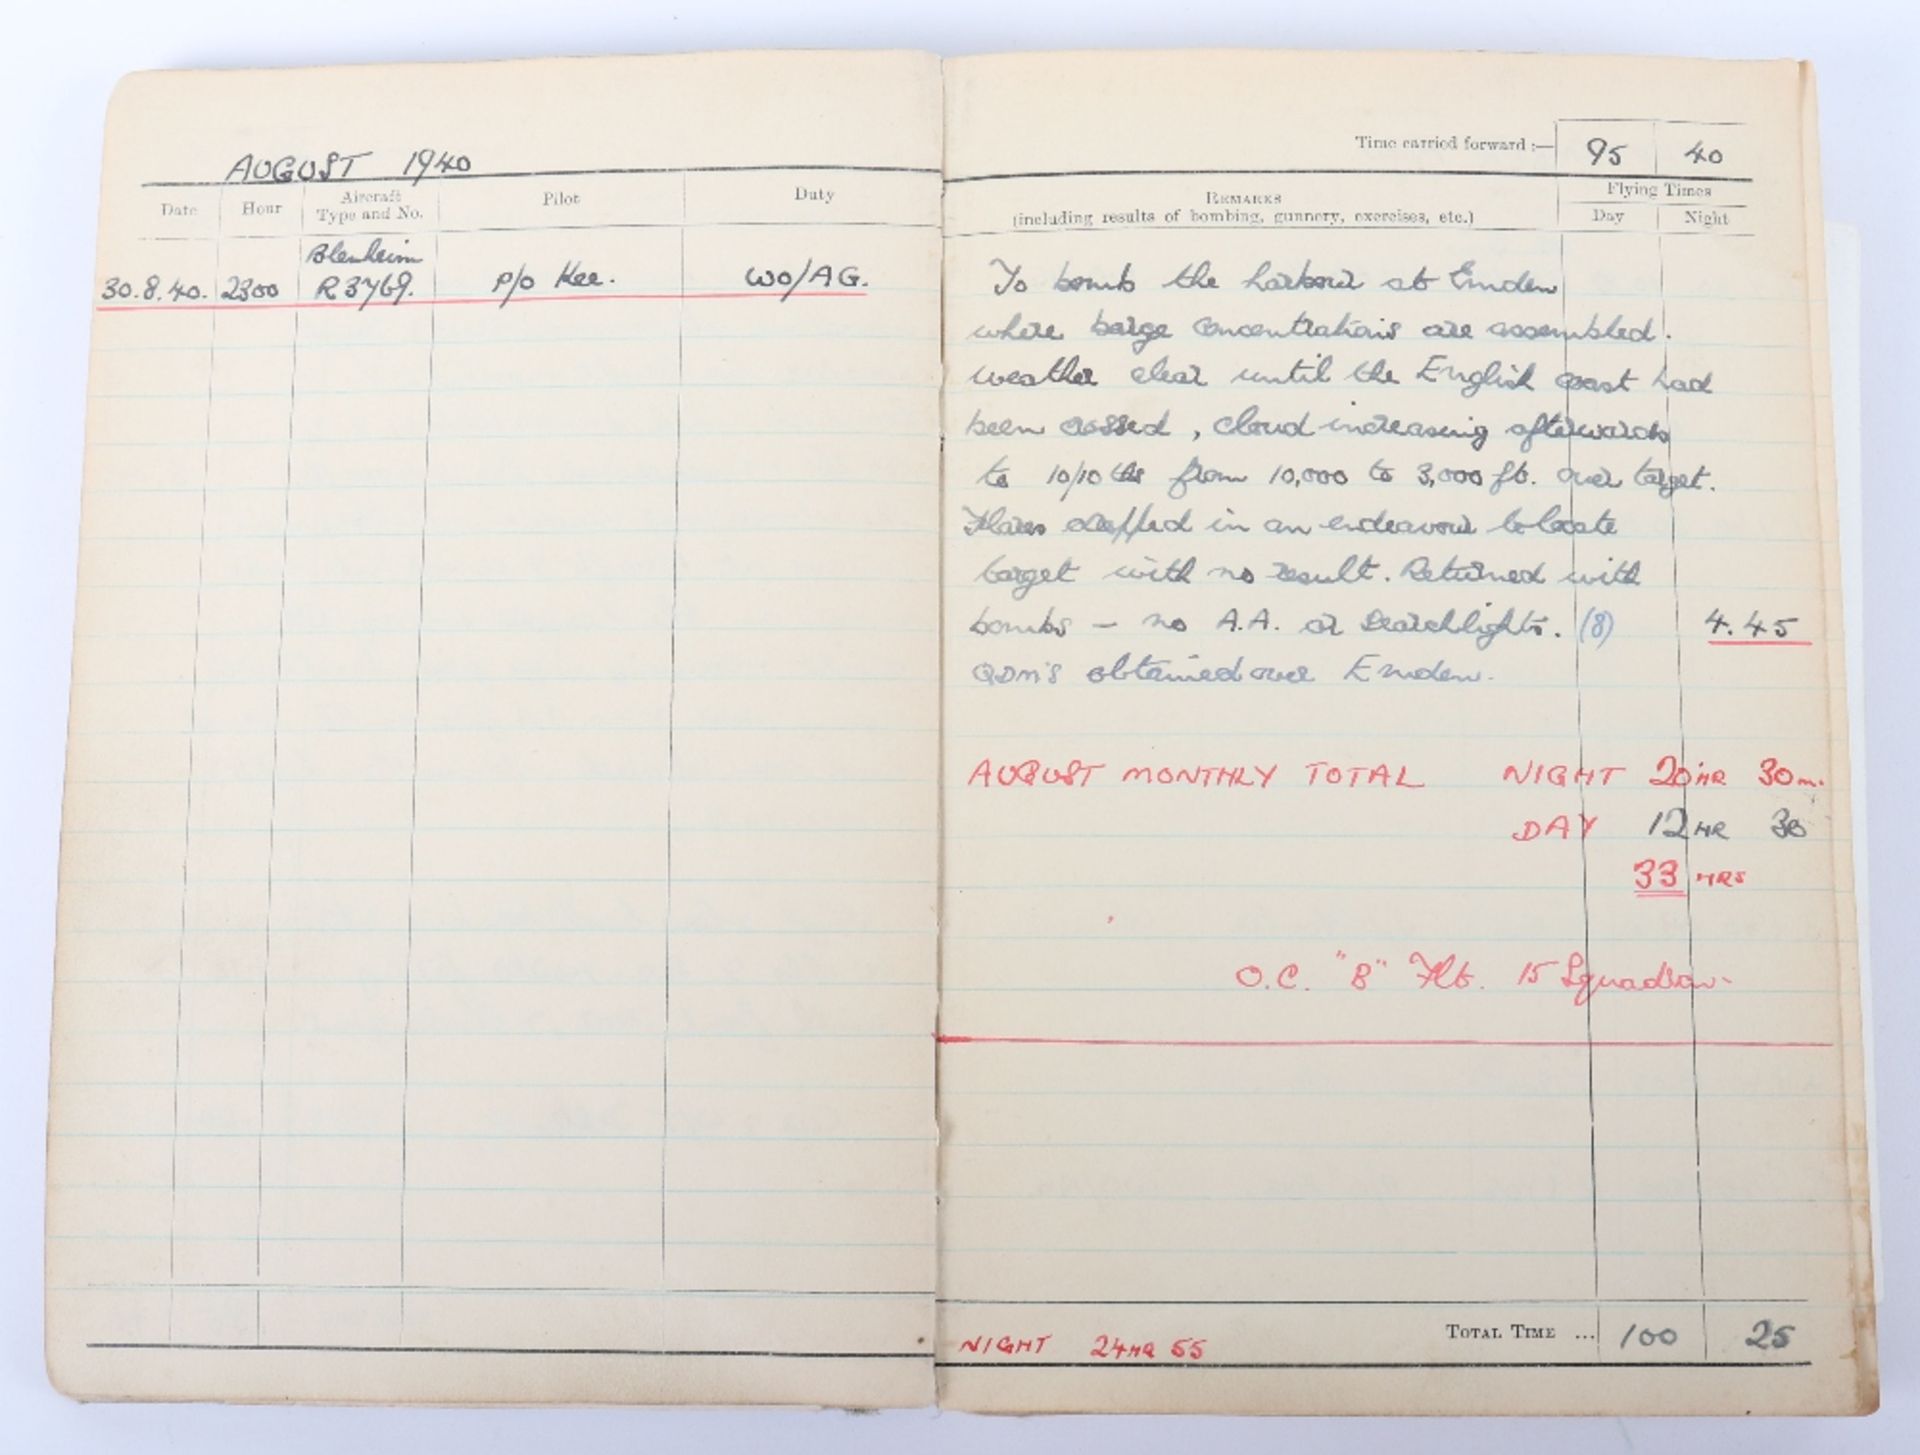 AUGUST 1940
Date Hour Aircraft Type and No. Pilot Duty
Blenheim
30.8.40. 2300 R3769. P/O Kee. WO/AG.
Time carried forward :— 95 40
REMARKS
(including results of bombing, gunnery, exercises, etc.)
Flying Times
Day Night
To bomb the harbour at Emden
where barge concentrations are assembled.
Weather clear until the English coast had
been crossed, cloud increasing afterwards
to 10/10ths from 10,000 to 3,000 ft. over target.
Flares dropped in an endeavour to locate
target with no result. Returned with
bombs – no A.A. or Searchlights. (8) 4.45
QDM's obtained over Emden.
AUGUST MONTHLY TOTAL NIGHT 20HR 30m.
DAY 12HR 30
33 HRS
O.C. "B" Flt. 15 Squadron.
NIGHT 24HR 55 TOTAL TIME ... 100 25